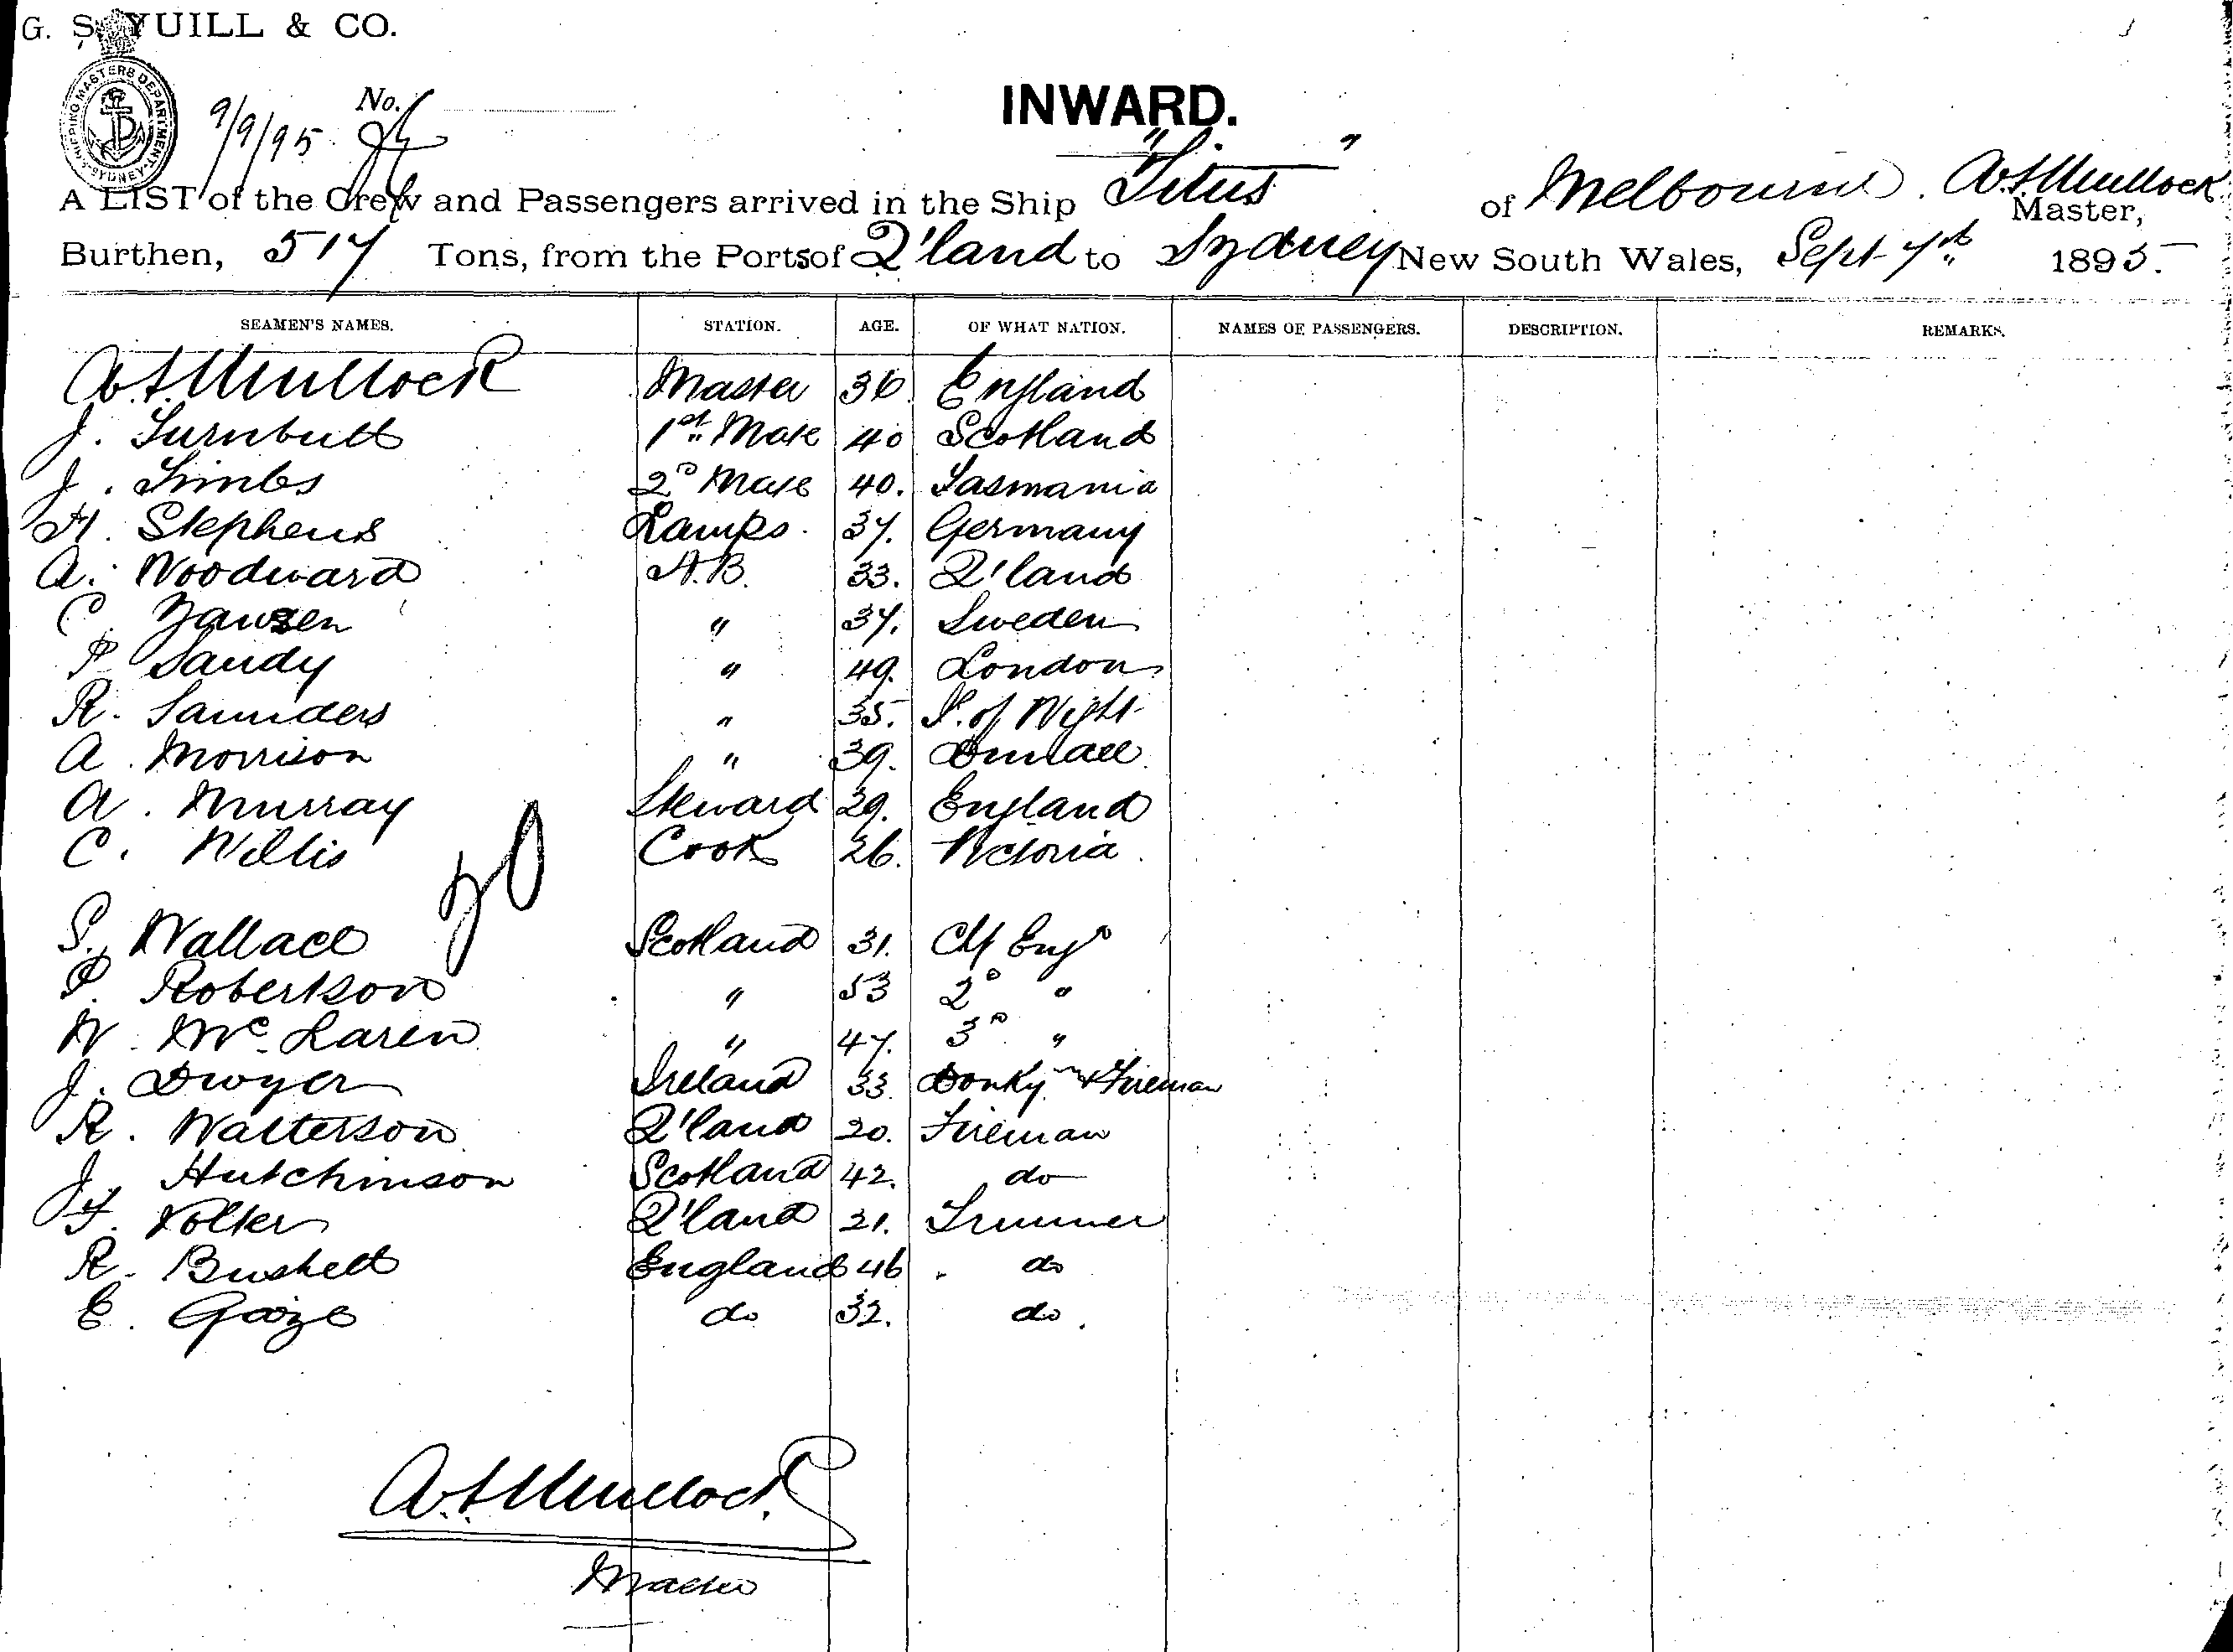 G. S. YUILL & CO.
SHIPPING MASTERS DEPARTMENT SYDNEY
9/9/95 No.
INWARD.
A LIST of the Crew and Passengers arrived in the Ship "Titus" of Melbourne. A. Mullock Master,
Burthen, 517 Tons, from the Ports of Q'land to Sydney New South Wales, Sept 7th 1895.
SEAMEN'S NAMES. STATION. AGE. OF WHAT NATION. NAMES OF PASSENGERS. DESCRIPTION. REMARKS.
Mullock Master 36 England
J. Turnbull 1st Mate 40 Scotland
J. Timbs 2D Mate 40. Tasmania
H. Stephens Lamps. 37. Germany
A. Woodward A.B. 33. Q'land
C. Jansen " 37. Sweden
P. Sandy " 49. London
R. Saunders " 35. I. of Wight
A. Morrison " 39.
A. Murray Steward 29. England
C. Willis Cook 26. Victoria
S. Wallace Scotland 31. Chf Engr
P. Robertson " 53 2D "
W. McLaren " 47. 3D "
J. Dwyer Ireland 33. Donkyn & Fireman
R. Watterson Q'land 20. Fireman
J. Hutchinson Scotland 42. do
F. Volker Q'land 21. Trimmer
R. Bushell England 46. do
E. Gaize do 32. do.
Mullock
Master